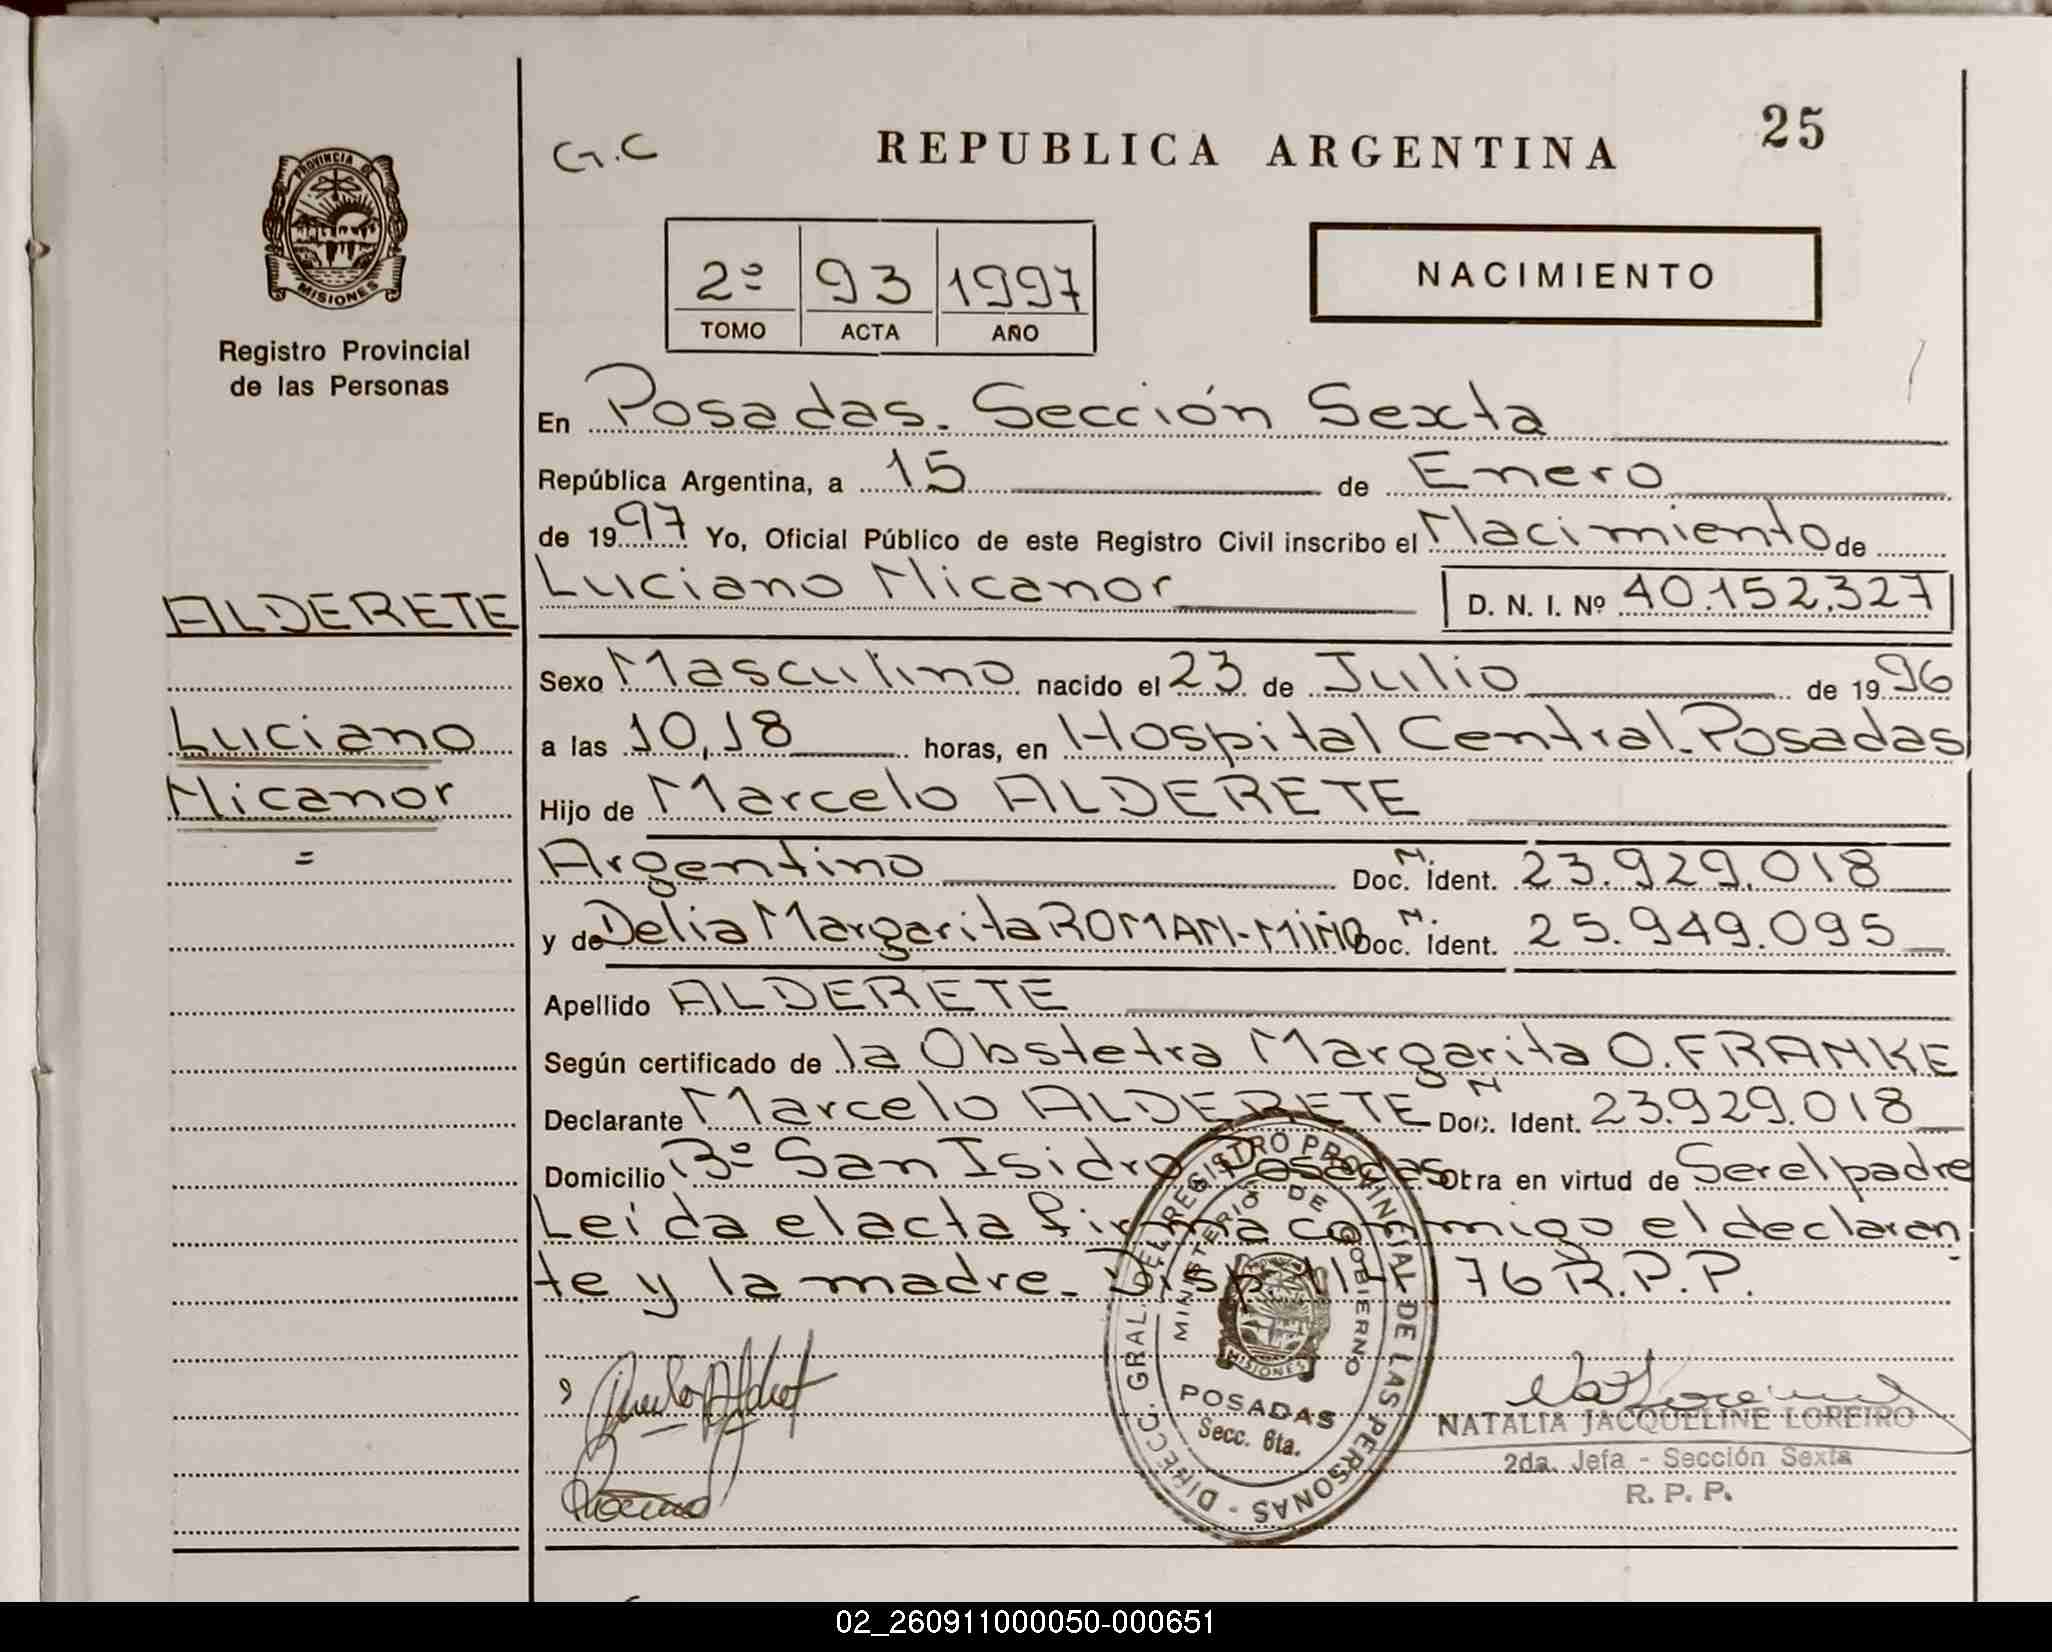 25
G.C
REPUBLICA ARGENTINA
PROVINCIA DE
MISIONES
Registro Provincial
de las Personas
2º 93 1997
TOMO ACTA AÑO
NACIMIENTO
En Posadas. Sección Sexta
República Argentina, a 15 de Enero
de 1997 Yo, Oficial Público de este Registro Civil inscribo el Nacimiento de
Luciano Nicanor D. N. I. Nº 40.152.327
ALDERETE
Luciano
Nicanor
=
Sexo Masculino nacido el 23 de Julio de 1996
a las 10,18 horas, en Hospital Central. Posadas
Hijo de Marcelo ALDERETE
Argentino Doc. N. Ident. 23.929.018
y de Delia Margarita ROMAN-MIÑO Doc. N. Ident. 25.949.095
Apellido ALDERETE
Según certificado de la Obstetra Margarita O. FRANKE
Declarante Marcelo ALDERETE Doc. N Ident. 23.929.018
Domicilio Bº San Isidro Posadas Otra en virtud de Ser el padre
Leída el acta firma conmigo el declaran
te y la madre. Disp. 76 R.P.P.
DIRECC. GRAL. DEL REGISTRO PROVINCIAL DE LAS PERSONAS -
MINISTERIO DE GOBIERNO
MISIONES
POSADAS
Secc. 6ta.
NATALIA JACQUELINE LOREIRO
2da. Jefa - Sección Sexta
R. P. P.
02_260911000050-000651